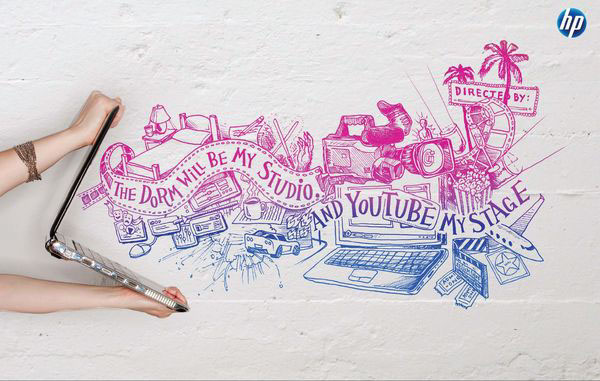 hp
DIRECTED BY:
THE DORM WILL BE MY STUDIO,
AND YOUTUBE MY STAGE